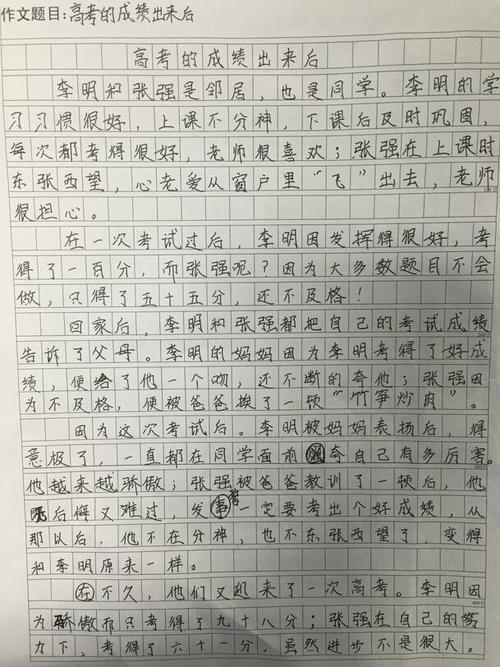 作文题目:高考的成绩出来后
高考的成绩出来后
李明和张强是邻居,也是同学。李明的学
习习惯很好,上课不分神,下课后及时巩固,
每次都考得很好,老师很喜欢;张强在上课时
东张西望,心老爱从窗户里“飞”出去,老师
很担心。
在一次考试过后,李明因发挥得很好,考
得了一百分,而张强呢?因为大多数题目不会
做,只得了五十五分,还不及格!
回家后,李明和张强都把自己的考试成绩
告诉了父母。李明的妈妈因为李明考得了好成
绩,便给了他一个吻,还不断的夸他;张强因
为不及格,便被爸爸揍了一顿“竹笋炒肉”。
因为这次考试后。李明被妈妈表扬后,得
意极了,一直都在同学面前夸自己有多厉害。
他越来越骄傲;张强被爸爸教训了一顿后,他
后悔又难过,发誓一定要考出个好成绩,从
那以后,他不在分神,也不东张西望了,变得
和李明原来一样。
在不久,他们又迎来了一次高考。李明因
为骄傲而只考得了九十八分;张强在自己的努
力下,考得了六十一分,虽然进步不是很大。